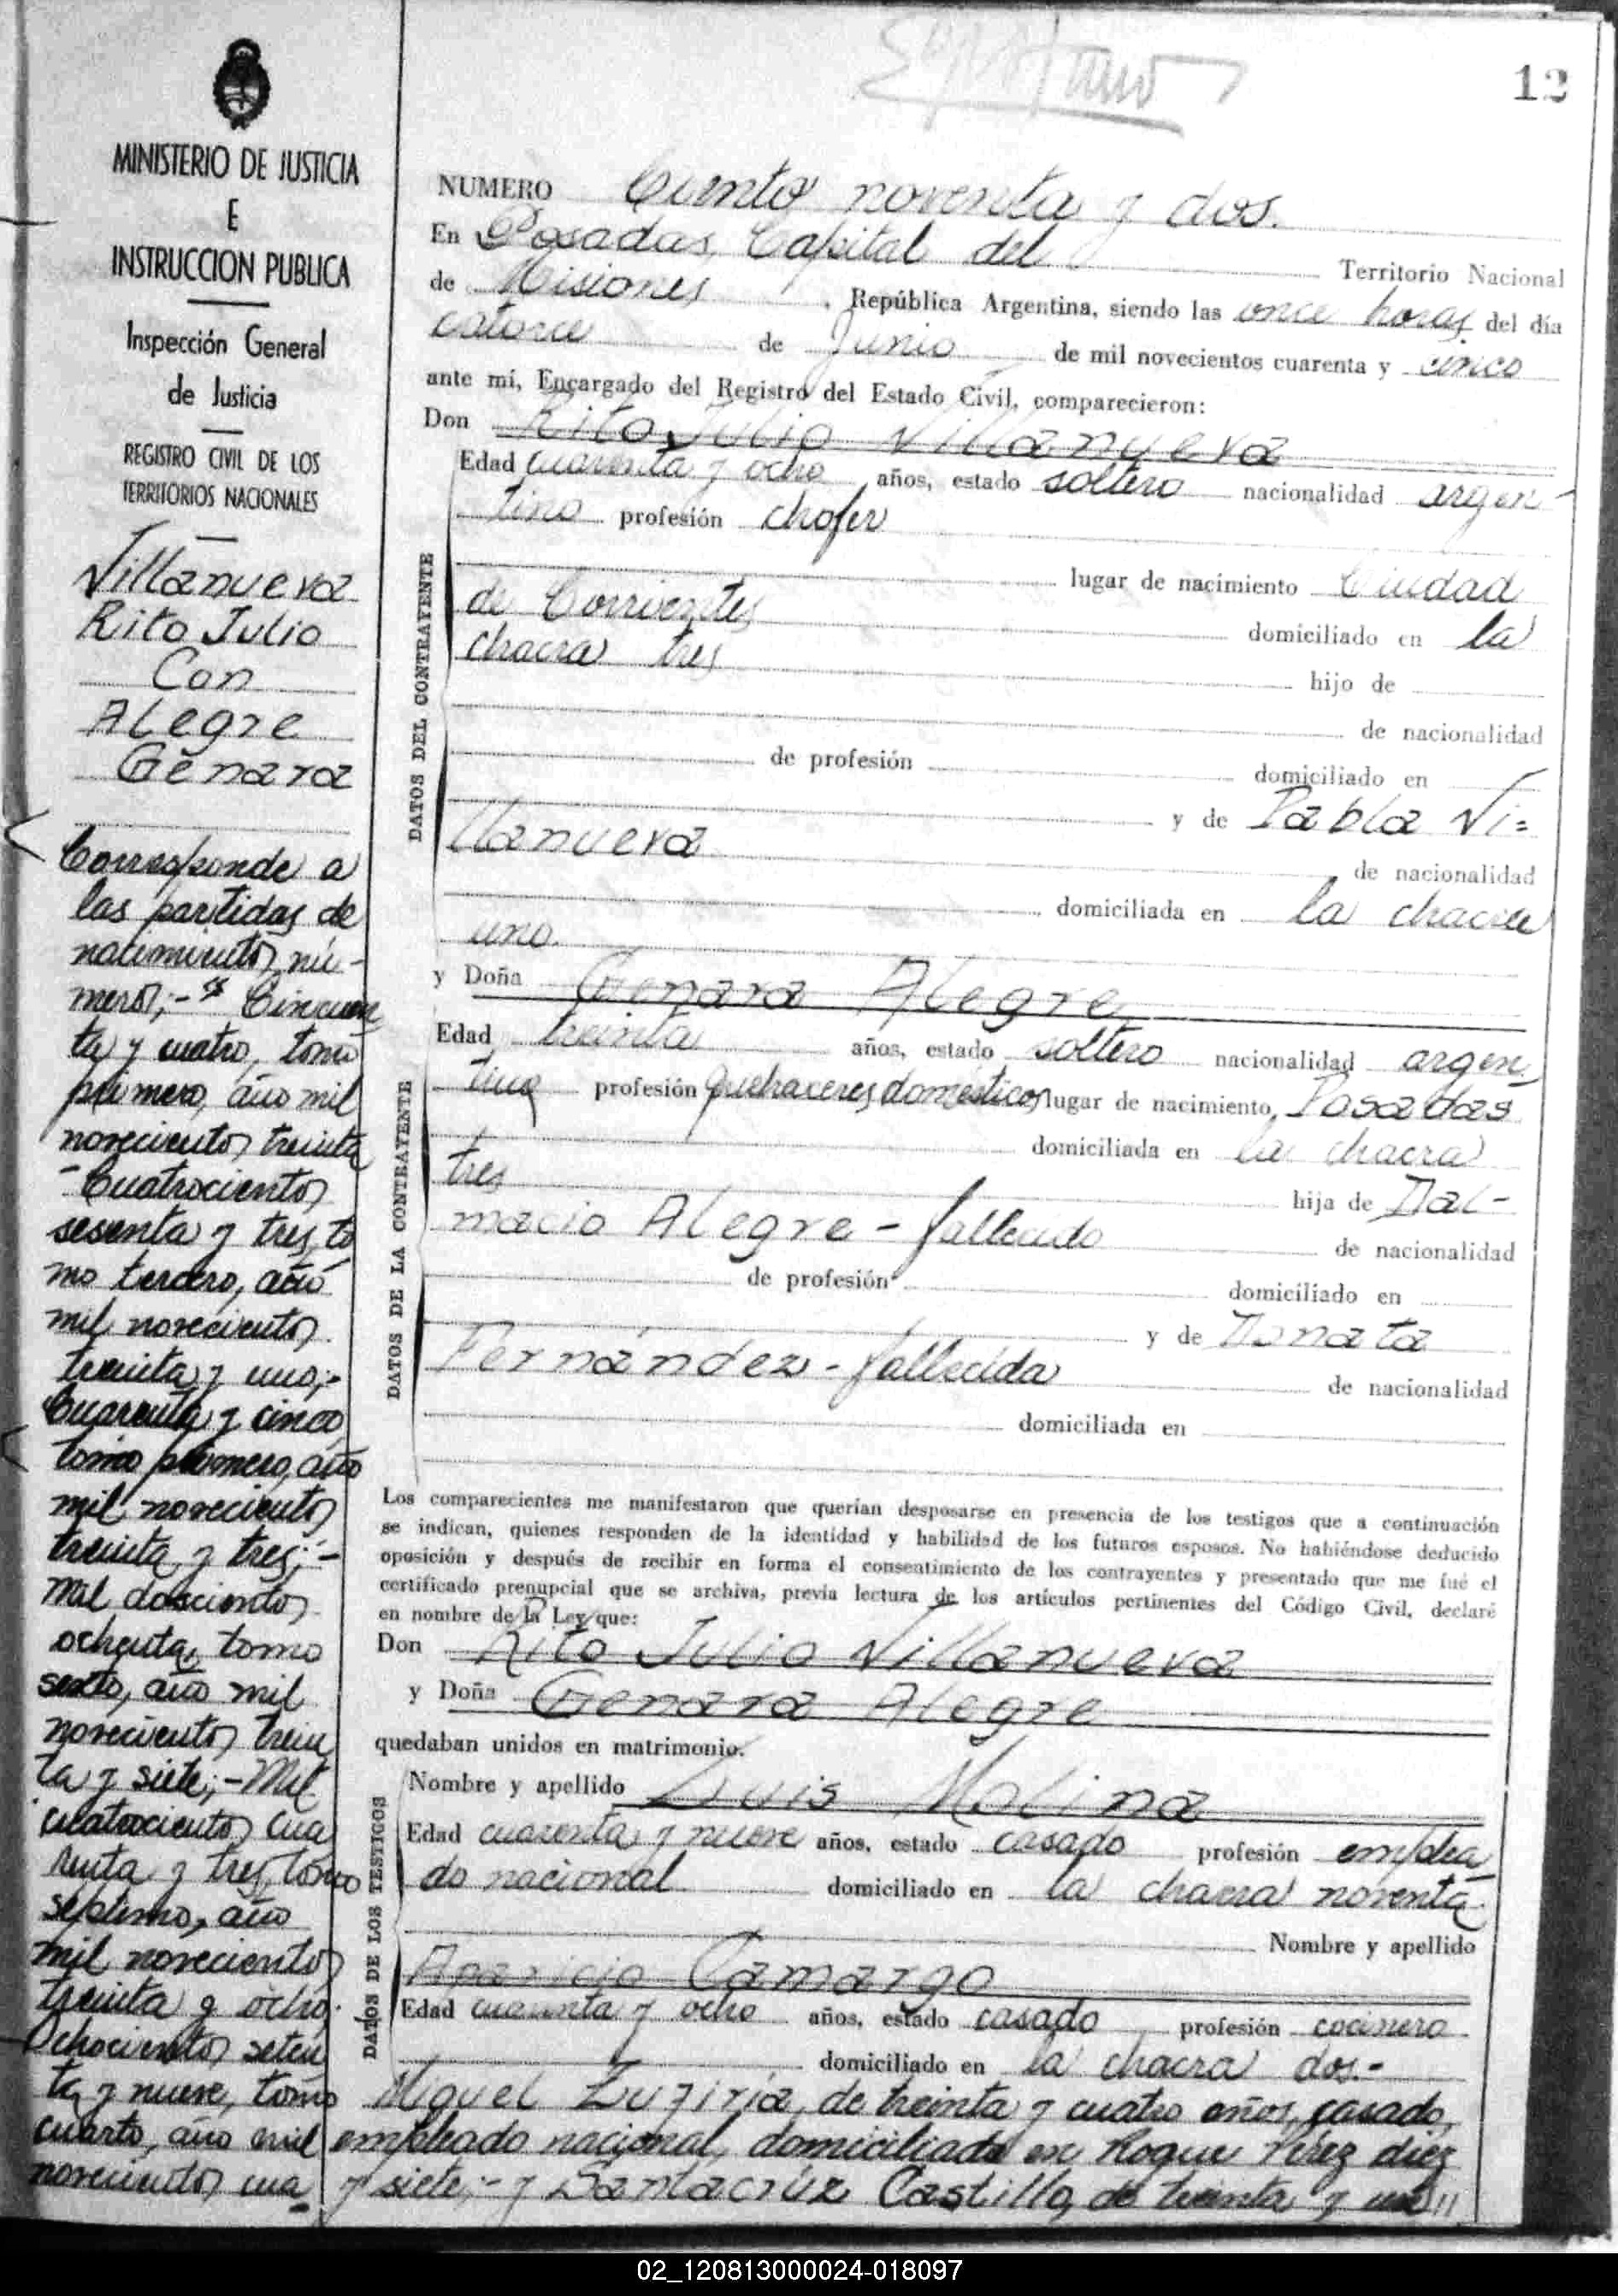 12
MINISTERIO DE JUSTICIA
E
INSTRUCCION PUBLICA
Inspección General
de Justicia
REGISTRO CIVIL DE LOS
TERRITORIOS NACIONALES
Villanueva
Rito Julio
Con
Alegre
Genara
Corresponde a
las partidas de
nacimientos nú-
meros;- Cincuen
ta y cuatro, tomo
primero, año mil
novecientos treinta
- Cuatrocientos
sesenta y tres, to
mo tercero, año
mil novecientos
treinta y uno;-
Cuarenta y cinco
tomo primero, año
mil novecientos
treinta y tres;-
Mil doscientos
ochenta, tomo
sexto, año mil
novecientos trein
ta y siete;- Mil
cuatrocientos cua
renta y tres, tomo
septimo, año
mil novecientos
treinta y ocho;
Ochocientos seten
ta y nueve, tomo
cuarto, año mil
novecientos cua
NUMERO Ciento noventa y dos.
En Posadas, Capital del Territorio Nacional
de Misiones, República Argentina, siendo las once horas del día
catorce de Junio de mil novecientos cuarenta y cinco
ante mí, Encargado del Registro del Estado Civil, comparecieron:
Don Rito Julio Villanueva
DATOS DEL CONTRAYENTE
Edad cuarenta y ocho años, estado soltero nacionalidad argen-
tino profesión chofer
lugar de nacimiento Ciudad
de Corrientes domiciliado en la
chacra tres hijo de
de nacionalidad
de profesión domiciliado en
y de Pabla Vi=
llanueva de nacionalidad
domiciliada en la chacra
uno.
y Doña Genara Alegre
DATOS DE LA CONTRAYENTE
Edad treinta años, estado soltero nacionalidad argen-
tina profesión quehaceres domésticos lugar de nacimiento, Posadas
domiciliada en la chacra
tres hija de Dal-
macio Alegre - fallecido de nacionalidad
de profesión domiciliado en
y de Donata
Fernández - fallecida de nacionalidad
domiciliada en
Los comparecientes me manifestaron que querían desposarse en presencia de los testigos que a continuación
se indican, quienes responden de la identidad y habilidad de los futuros esposos. No habiéndose deducido
oposición y después de recibir en forma el consentimiento de los contrayentes y presentado que me fué el
certificado prenupcial que se archiva, previa lectura de los artículos pertinentes del Código Civil, declaré
en nombre de la Ley que:
Don Rito Julio Villanueva
y Doña Genara Alegre
quedaban unidos en matrimonio.
DATOS DE LOS TESTIGOS
Nombre y apellido Luis Molina
Edad cuarenta y nueve años, estado casado profesión emplea
do nacional domiciliado en la chacra noventa
Nombre y apellido
Aparicio Camargo
Edad cuarenta y ocho años, estado casado profesión cocinero
domiciliado en la chacra dos.-
Miguel de treinta y cuatro años, casado,
empleado nacional, domiciliado en Roque Pérez diez
y siete;- y Santacruz Castillo, de treinta y un
02_120813000024-018097